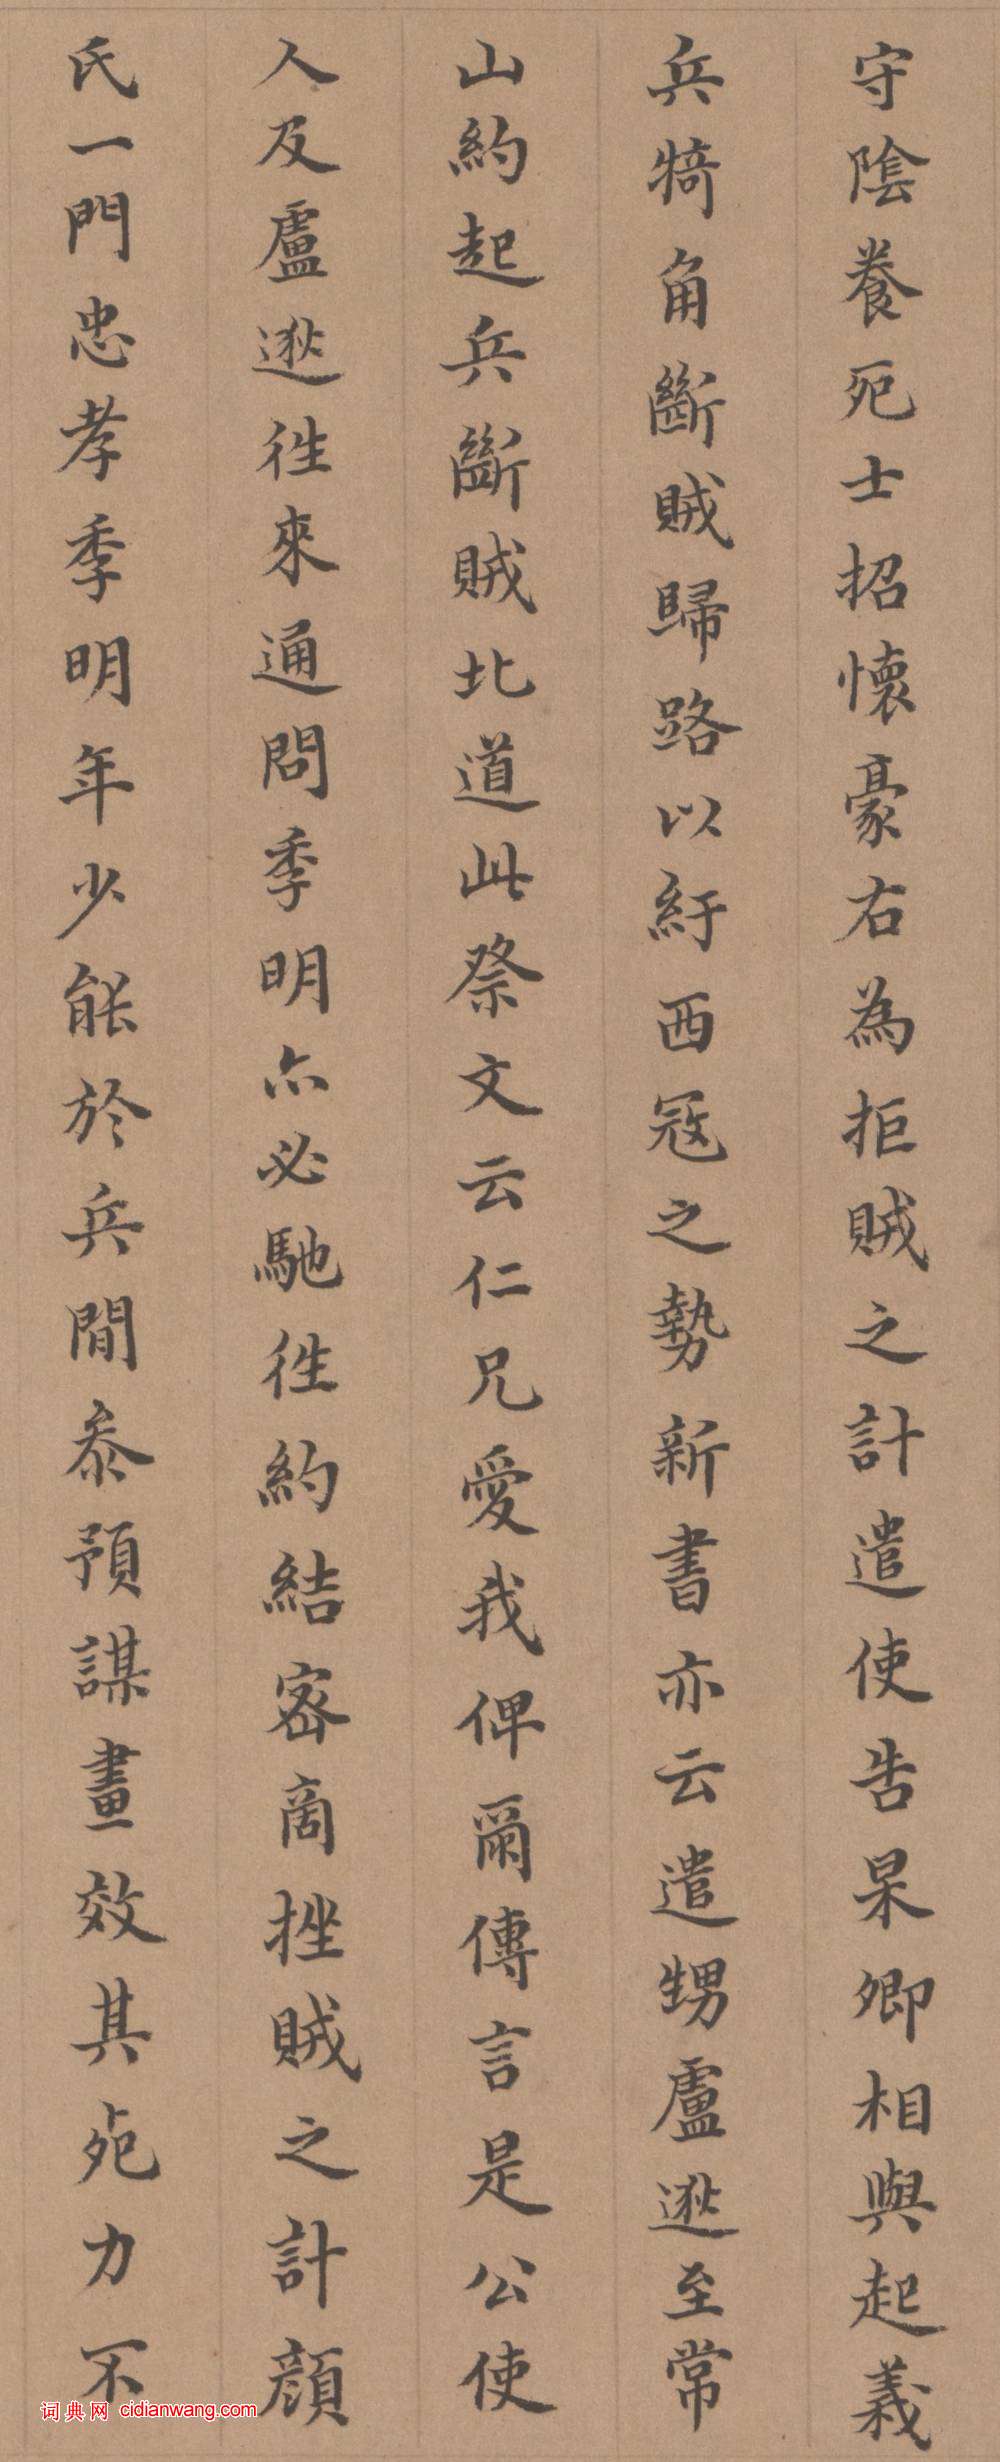 守陰養死士招懷豪右為拒賊之計遣使告杲卿相與起義
兵犄角斷賊歸路以紓西冦之勢新書亦云遣甥盧逖至常
山約起兵斷賊北道此祭文云仁兄愛我俾爾傳言是公使
人及盧逖徃來通問季明亦必馳徃約結密啇挫賊之計顔
氏一門忠孝季明年少能於兵間叅預謀畫效其死力不
词典网 cidianwang.com